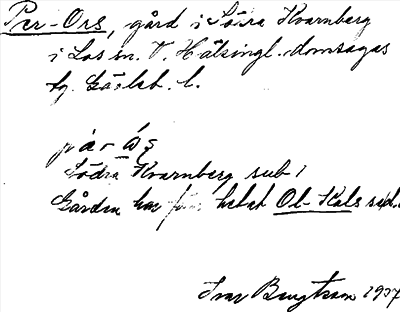 Per-Ors, gård i Södra Kvarnberg
i Los sn. V. Hälsingl. domsagas
tg. Gävleb. l.
pär ȧs̨
Södra Kvarnberg sub 1
Gården har förr hetat Ol-Kals
Ivar Bengtsson 1937